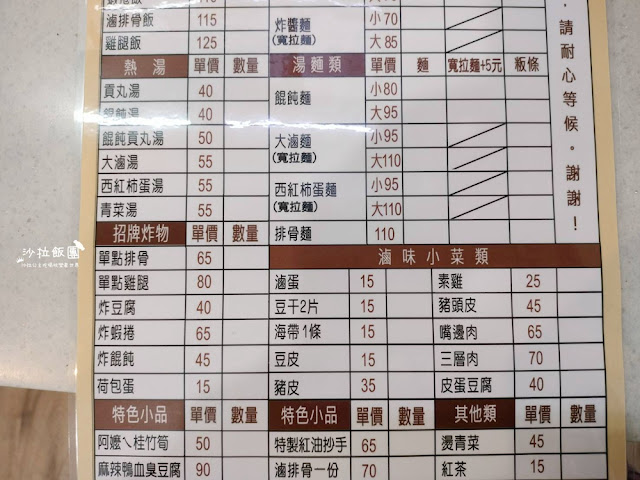 滷排骨飯 115
雞腿飯 125
炸醬麵 (寬拉麵) 小70
大85
熱湯 單價 數量
貢丸湯 40
餛飩湯 40
餛飩貢丸湯 50
大滷湯 55
西紅柿蛋湯 55
青菜湯 55
湯麵類 單價 麵 寬拉麵+5元 粄條
餛飩麵 小80
大95
大滷麵 (寬拉麵) 小95
大110
西紅柿蛋麵 (寬拉麵) 小95
大110
排骨麵 110
招牌炸物 單價 數量
單點排骨 65
單點雞腿 80
炸豆腐 40
炸蝦捲 65
炸餛飩 45
荷包蛋 15
滷味小菜類
滷蛋 15
豆干2片 15
海帶1條 15
豆皮 15
豬皮 35
素雞 25
豬頭皮 45
嘴邊肉 65
三層肉 70
皮蛋豆腐 40
特色小品 單價 數量
阿嬤ㄟ桂竹筍 50
麻辣鴨血臭豆腐 90
特色小品 單價 數量
特製紅油抄手 65
滷排骨一份 70
其他類 單價 數量
燙青菜 45
紅茶 15
,請耐心等候。謝謝!
沙拉飯團